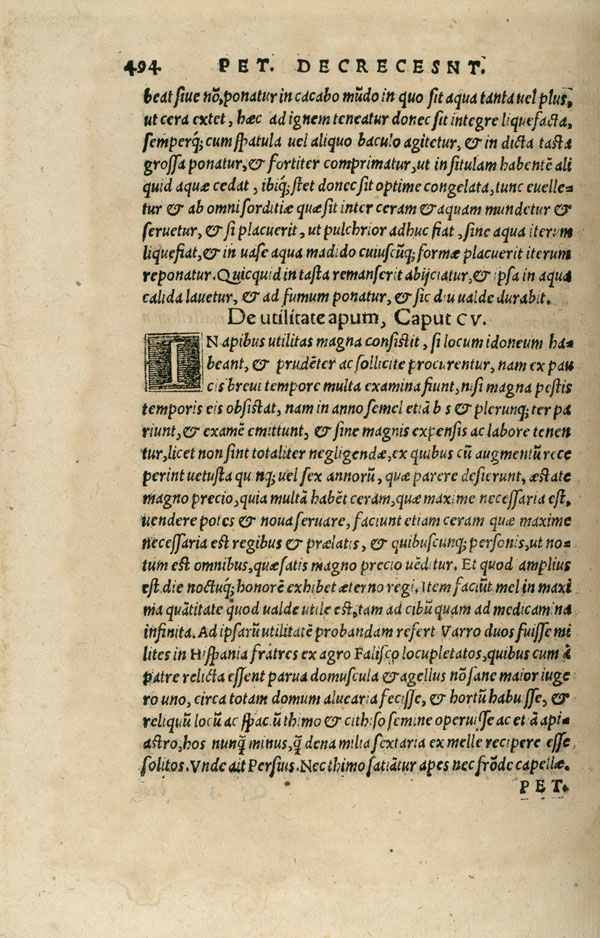 494 PET. DECRECESNT.
beat siue nō, ponatur in cacabo mūdo in quo sit aqua tanta uel plus,
ut cera extet, hæc ad ignem teneatur donec sit integre liquefacta,
semperq; cum spatula uel aliquo baculo agitetur, & in dicta tasta
grossa ponatur, & fortiter comprimatur, ut in situlam habentē ali
quid aquæ cedat, ibiq; stet donec sit optime congelata, tunc euelle-
tur & ab omni sorditiæ quæ sit inter ceram & aquam mundetur &
seruetur, & si placuerit, ut pulchrior adhuc fiat, sine aqua iterum
liquefiat, & in uase aqua madido cuiuscūq; formæ placuerit iterum
reponatur. Quicquid in tasta remanserit abijciatur, & ipsa in aqua
calida lauetur, & ad fumum ponatur, & sic diu ualde durabit.
De utilitate apum, Caput CV.
IN apibus utilitas magna consistit, si locum idoneum ha-
beant, & prudēter ac sollicite procurentur, nam ex pau
cis breui tempore multa examina fiunt, nisi magna pestis
temporis eis obsistat, nam in anno semel etiā b s & plerunq; ter pa
riunt, & examē emittunt, & sine magnis expensis ac labore tenen
tur, licet non sint totaliter negligendæ, ex quibus cū augmentū rece
perint uetusta qu nq; uel sex annorū, quæ parere desierunt, æstate
magno precio, quia multā habēt ceram, quæ maxime necessaria est,
uendere potes & noua seruare, faciunt etiam ceram quæ maxime
necessaria est regibus & prælatis, & quibuscunq; personis, ut no-
tum est omnibus, quæ satis magno precio uēditur. Et quod amplius
est, die noctuq; honorē exhibet æterno regi. Item faciūt mel in maxi
ma quātitate quod ualde utile est, tam ad cibū quam ad medicamina
infinita. Ad ipsarū utilitatē probandam refert Varro duos fuisse mi
lites in Hispania fratres ex agro Falisco locupletatos, quibus cum à
patre relicta essent parua domuscula & agellus nō sane maior iuge
ro uno, circa totam domum aluearia fecisse, & hortū habuisse, &
reliquū locū ac spac.ū thimo & cithiso semine operuisse ac et ā apia
astro, hos nunq̄ minus, q̄ dena milia sextaria ex melle recipere esse
solitos. Vnde ait Persius. Nec thimo satiātur apes nec frōde capellæ.
PET.